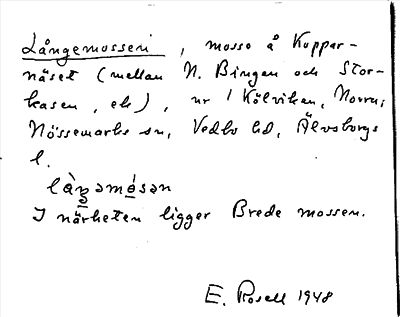 Långemossen, mosse å Koppar-
näset (mellan N. Bingen och Stor-
kasen, ek), nr 1 Kölviken, Norra,
Nössemarks sn, Vedbo hd, Älvsborgs
l.
làŋəmósən
I närheten ligger Brede mossen.
E. Rosell 1948